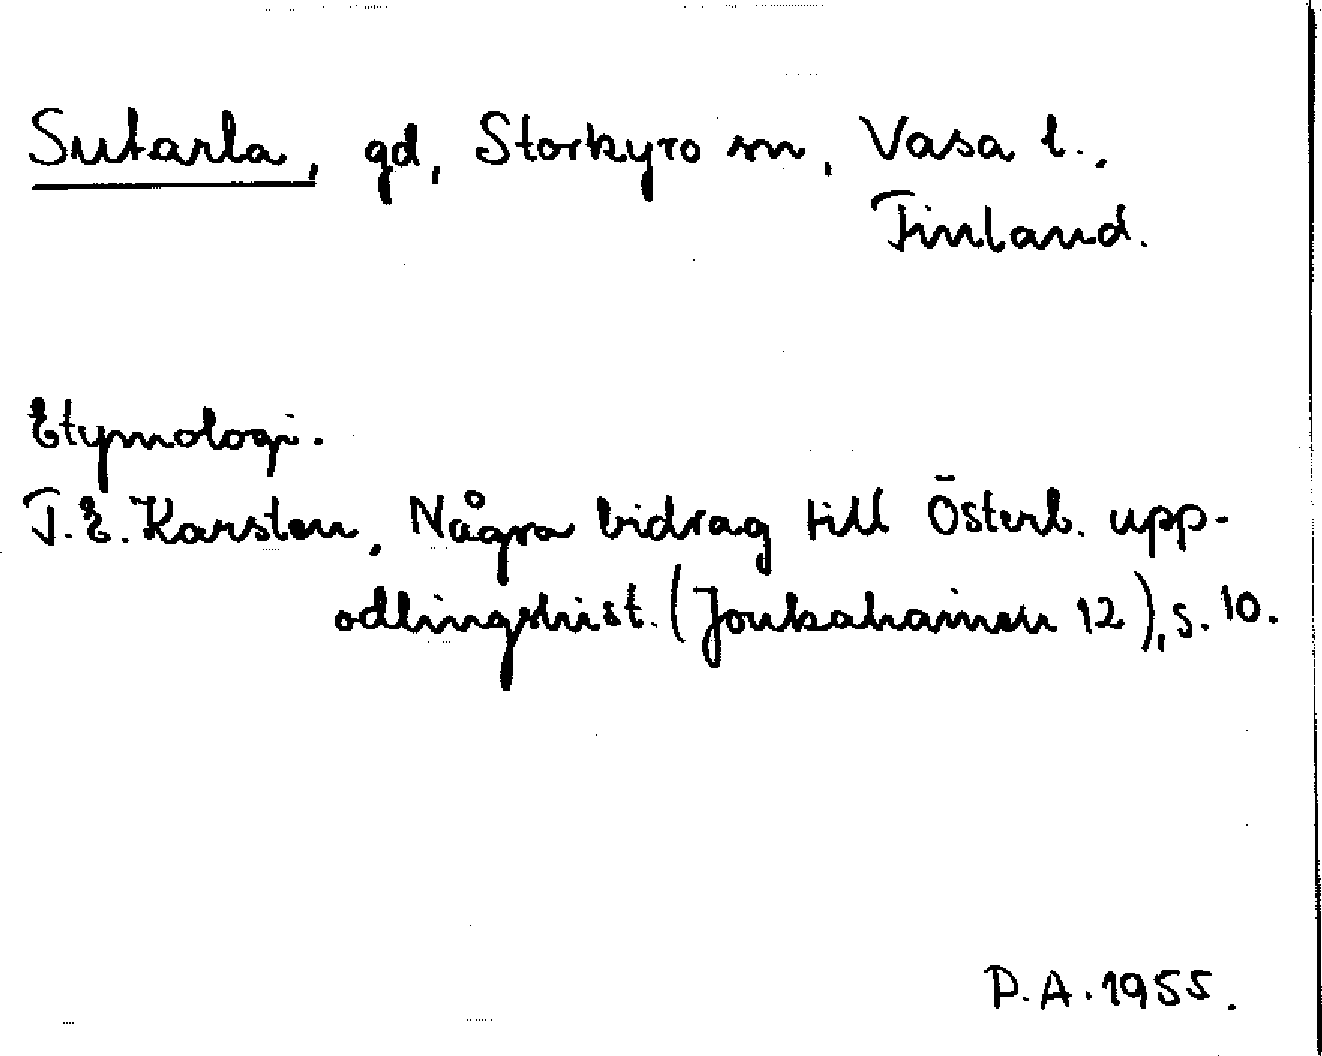 Sutarla, gd, Storkyro sn, Vasa l.,
Finland.
Etymologi.
T.E. Karsten, Några bidrag till Österb. upp-
odlingshist. (Joukahainen 12), s. 10.
P.A. 1955.